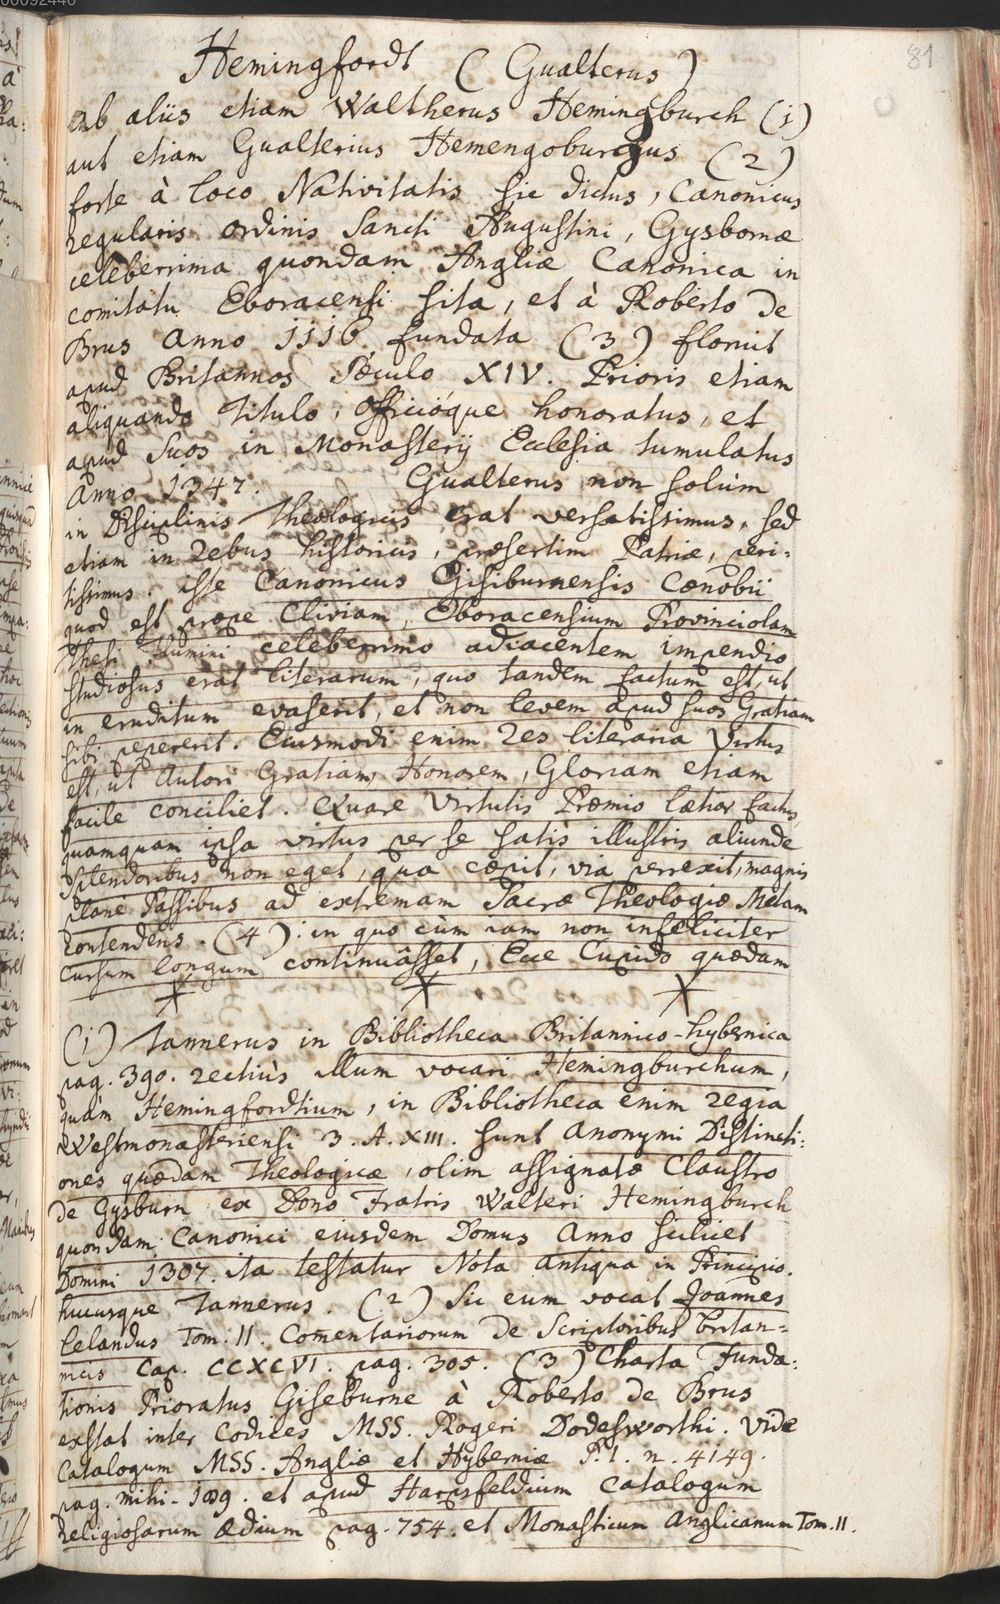 81
Hemingfordt (Gualterus)
ab aliis etiam Waltherus Hemingburch (1)
aut etiam Gualterius Hemengoburgus (2)
forte à loco Nativitatis sic dictus, Canonicus
regularis ordinis Sancti Augustini, Gysbornæ
celeberrima quondam Angliæ Canonica in
comitatu Eboracensi sita, et à Roberto De
Brus Anno 1116. fundata (3) floruit
apud Britannos Sæculo XIV. Prioris etiam
aliquando titulo, officióque honoratus, et
apud suos in Monasterij Ecclesia tumulatus
Anno 1347. Gualterus non solùm
in Disciplinis Theologicis erat versatissimus, sed
etiam in rebus historicis, præsertim Patriæ, peri-
tissimus. iste Canonicus Gisiburnensis Cœnobii
quod est prope Cliviam, Eboracensium Provinciolam
Thesi flumini celeberrimo adiacentem impendio
studiosus erat literarum, quo tandem factum est, ut
in eruditum evaserit, et non levem apud suos Gratiam
sibi pepererit. Eiusmodi enim res literaria Virtus
est, ut Autori Gratiam, Honorem, Gloriam etiam
facile conciliet. Quare Virtutis Præmio lætior factus,
quamquam ipsa virtus per se satis illustris aliunde
splendoribus non eget, qua cœpit, via perrexit, magnis
planè Passibus ad extremam Sacræ Theologiæ Metam
contendens. (4): in quo cùm iam non infeliciter
cursum longum continuâsset, Ecce Cupido quædam
(1) Tannerus in Bibliotheca Britannico-hybernica
pag. 390. rectiùs illum vocari Hemingburchum,
quàm Hemingfordtium, in Bibliotheca enim regia
Westmonasteriensi 3. A. XIII. sunt Anonymi Distincti:
ones quædam Theologicæ, olim assignatæ Claustro
de Gysburn ex Dono Fratris Walteri Hemingburch
quondam Canonici eiusdem Domus Anno scilicet
Domini 1307. ita testatur Nota antiqua in Principio.
hucusque Tannerus. (2) Sic eum vocat Joannes
Lelandus Tom. II. Comentariorum de Scriptoribus Britan-
nicis Cap. CCXCVI. pag. 305. (3) Charta Funda:
tionis Prioratus Giseburne à Roberto de Brus
exstat inter Codices MSS. Rogeri Dodesworthi. Vide
Catalogum MSS. Angliæ et Hyberniæ P. I. n. 4149.
pag. mihi - 189. et apud Harpsfeldium Catalogum
religiosarum Ædium pag. 754. et Monasticum Anglicanum Tom. II.